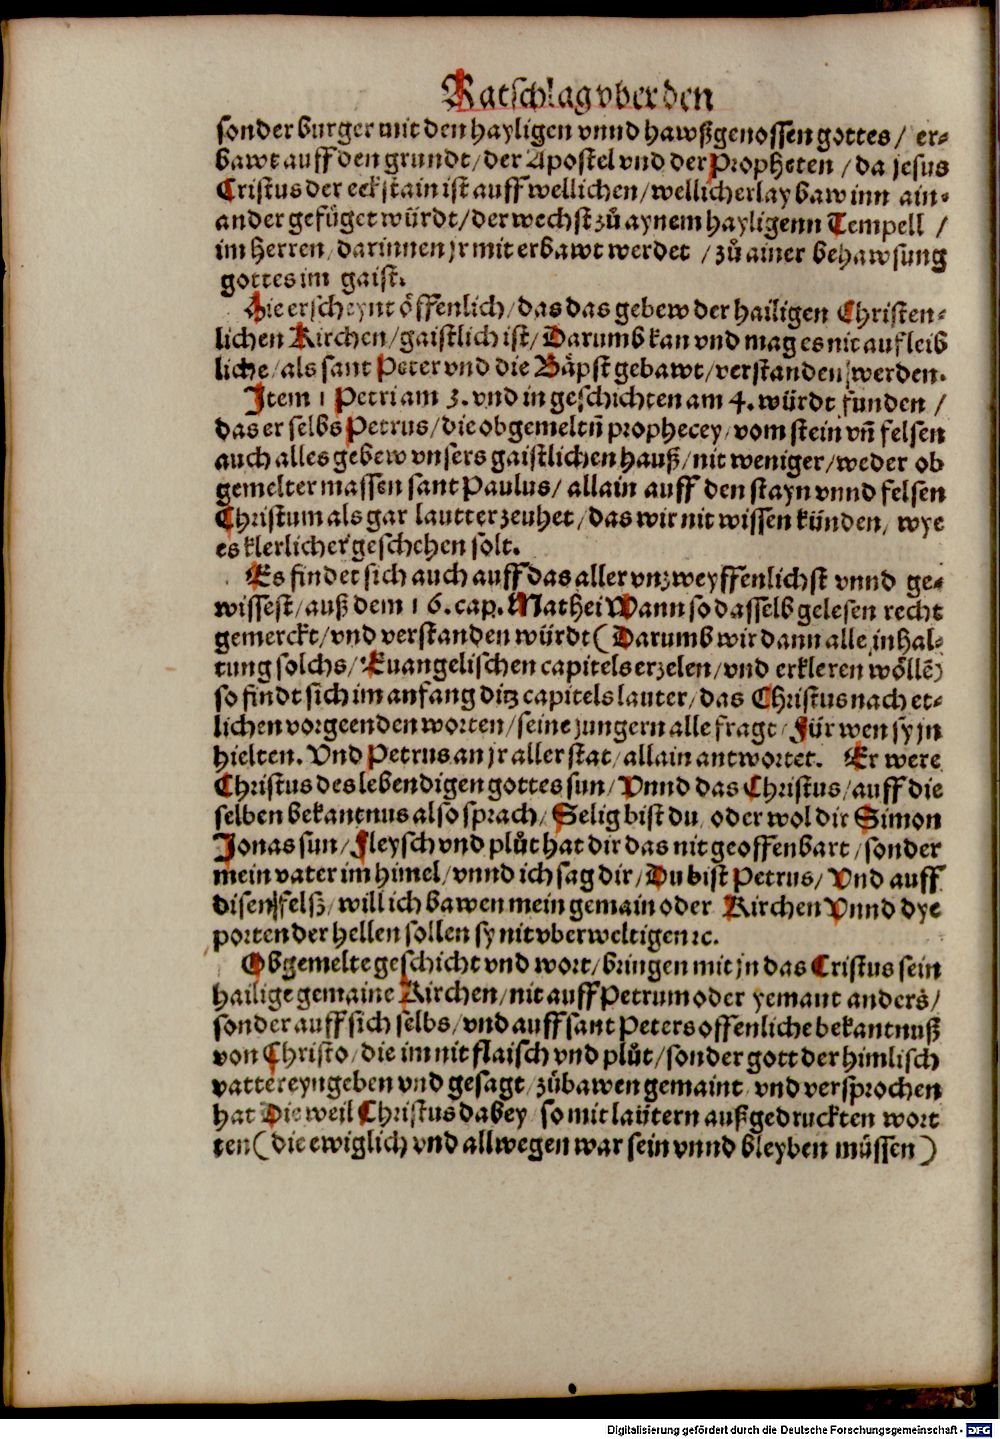 Ratschlag vber den
sonder burger mit den hayligen vnnd hawßgenossen gottes / er-
bawt auff den grundt / der Apostel vnd der Propheten / da jesus
Cristus der eckstain ist auff wellichen / wellicherlay baw inn ain-
ander gefüget würdt / der wechst zů aynem hayligenn Tempell /
im Herren / darinnen jr mit erbawt werdet / zů ainer behawsung
gottes im gaist.
Hie erscheynt öffenlich / das das gebew der hailigen Christen-
lichen Kirchen / gaistlich ist / Darumb kan vnd mag es nit auf leib
liche / als sant Peter vnd die Bäpst gebawt / verstanden werden.
Jtem 1 Petri am 3. vnd in geschichten am 4. würdt funden /
das er selbs Petrus / die obgemeltñ prophecey / vom stein vñ felsen
auch alles gebew vnsers gaistlichen hauß / nit weniger / weder ob
gemelter massen sant Paulus / allain auff den stayn vnnd felsen
Christum als gar lautter zeuhet / das wir nit wissen künden / wye
es klerlicher geschehen solt.
Es findet sich auch auff das aller vnzweyffenlichst vnnd ge-
wissest / auß dem 16. cap. Mathei Wann so dasselb gelesen recht
gemerckt / vnd verstanden würdt ( Darumb wir dann alle inhal-
tung solchs / Euangelischen capitels erzelen / vnd erkleren wöllē)
so findt sich im anfang ditz capitels lauter / das Christus nach et-
lichen vorgeenden worten / seine jungern alle fragt / Für wen sy jn
hielten. Vnd Petrus an jr aller stat / allain antwortet. Er were
Christus des lebendigen gottes sun / Vnnd das Christus / auff die
selben bekantnus also sprach / Selig bist du / oder wol dir Simon
Jonas sun / Fleysch vnd plůt hat dir das nit geoffenbart / sonder
mein vater im himel / vnnd ich sag dir / Du bist Petrus / Vnd auff
disen felß / will ich bawen mein gemain oder Kirchen Vnnd dye
porten der hellen sollen sy nit vberweltigen ꝛc.
Obgemelte geschicht vnd wort / bringen mit jn das Cristus sein
hailige gemaine Kirchen / nit auff Petrum oder yemant anders /
sonder auff sich selbs / vnd auff sant Peters offenliche bekantnuß
von Christo / die im nit flaisch vnd plůt / sonder gott der himlisch
vatter eyngeben vnd gesagt / zůbawen gemaint / vnd versprochen
hat Die weil Christus dabey / so mit laütern außgedruckten wort
ten ( die ewiglich vnd allwegen war sein vnnd bleyben müssen )
Digitalisierung gefördert durch die Deutsche Forschungsgemeinschaft - DFG